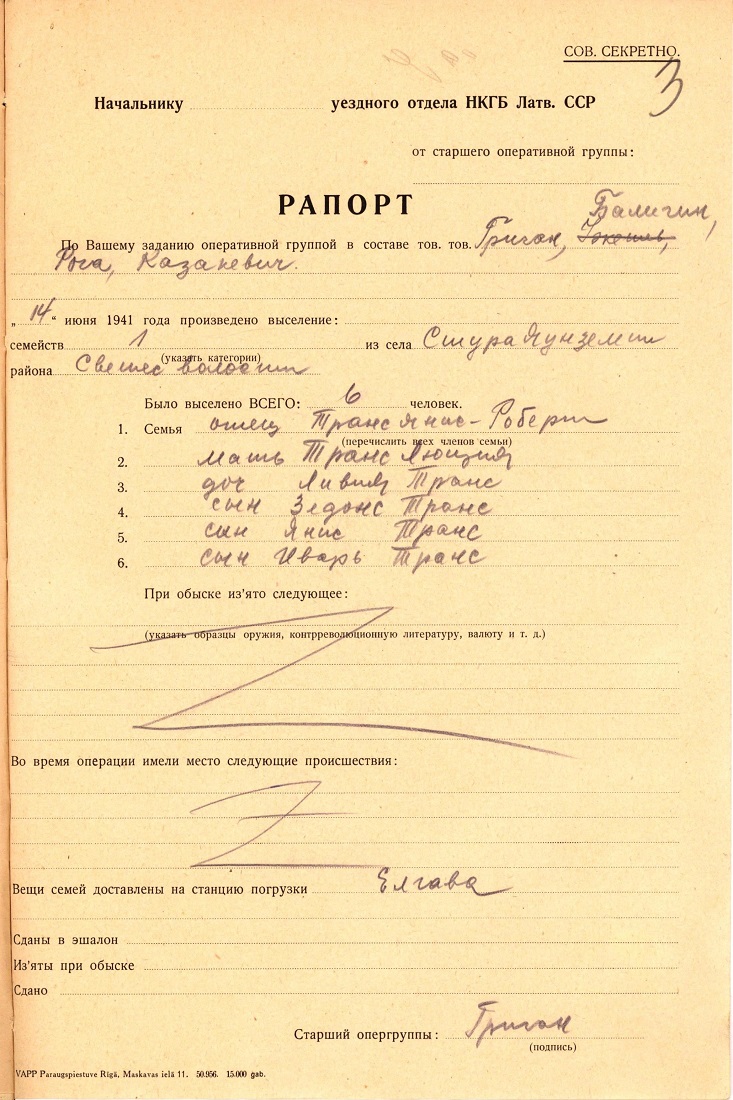 СОВ. СЕКРЕТНО.
3
Начальнику уездного отдела НКГБ Латв. ССР
от старшего оперативной группы:
РАПОРТ
Балигин,
По Вашему заданию оперативной группой в составе тов. тов. Григан,
Рога, Казакевич.
„14“ июня 1941 года произведено выселение:
семейств 1 из села Стура Яунземи
(указать категории)
района Светес волости
Было выселено ВСЕГО: 6 человек.
1. Семья отец Транс Янис-Роберт
(перечислить всех членов семьи)
2. мать Транс Люция
3. доч Ливия Транс
4. сын Зедонс Транс
5. сын Янис Транс
6. сын Иварь Транс
При обыске из'ято следующее:
(указать образцы оружия, контрреволюционную литературу, валюту и т. д.)
Во время операции имели место следующие происшествия:
Вещи семей доставлены на станцию погрузки Елгава
Сданы в эшалон
Из'яты при обыске
Сдано
Старший опергруппы: Григан
(подпись)
VAPP Paraugspiestuve Rīgā, Maskavas ielā 11. 50.956. 15.000 gab.